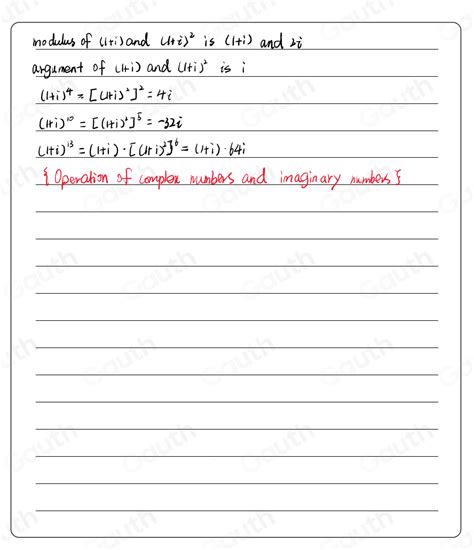 modulus of (1+i) and (1+i)² is (1+i) and 2i
argument of (1+i) and (1+i)² is i
(1+i)⁴ = [(1+i)²]² = 4i
(1+i)¹⁰ = [(1+i)²]⁵ = -32i
(1+i)¹³ = (1+i)·[(1+i)²]⁶ = (1+i)·64i
{ Operation of complex numbers and imaginary numbers }